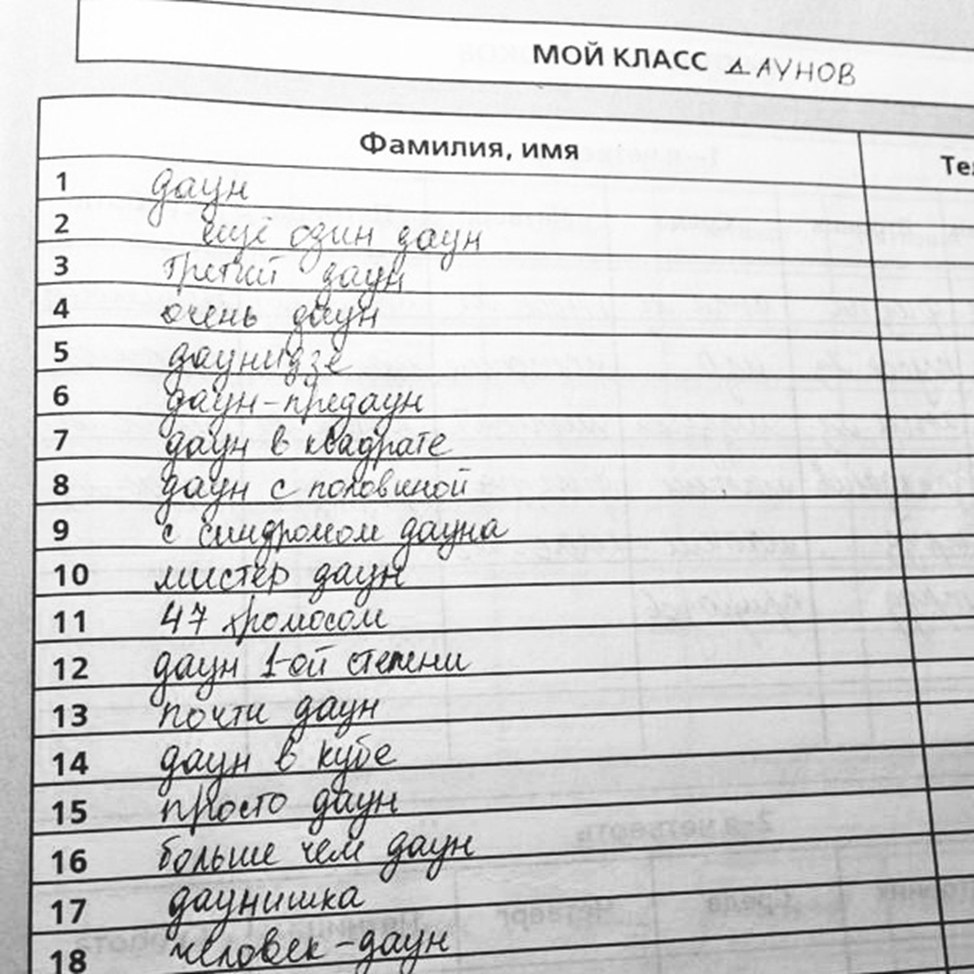 МОЙ КЛАСС ДАУНОВ
Фамилия, имя
Тел
1 даун
2 ещё один даун
3 третий даун
4 очень даун
5 даунидзе
6 даун-предаун
7 даун в квадрате
8 даун с половиной
9 с синдромом дауна
10 мистер даун
11 47 хромосом
12 даун 1-ой степени
13 почти даун
14 даун в кубе
15 просто даун
16 больше чем даун
17 даунишка
18 человек-даун
2-я четверть
Среда
Четверг
Пятница